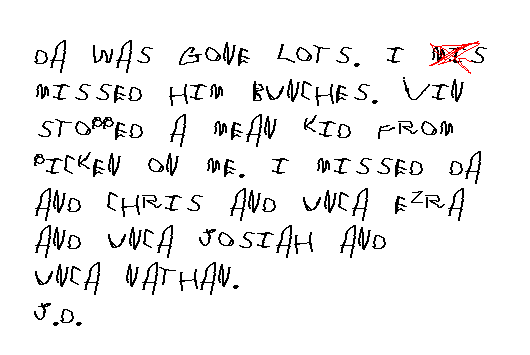 DA WAS GONE LOTS. I MIS
MISSED HIM BUNCHES. VIN
STOPPED A MEAN KID FROM
PICKEN ON ME. I MISSED DA
AND CHRIS AND UNCA EZRA
AND UNCA JOSIAH AND
UNCA NATHAN.
J.D.